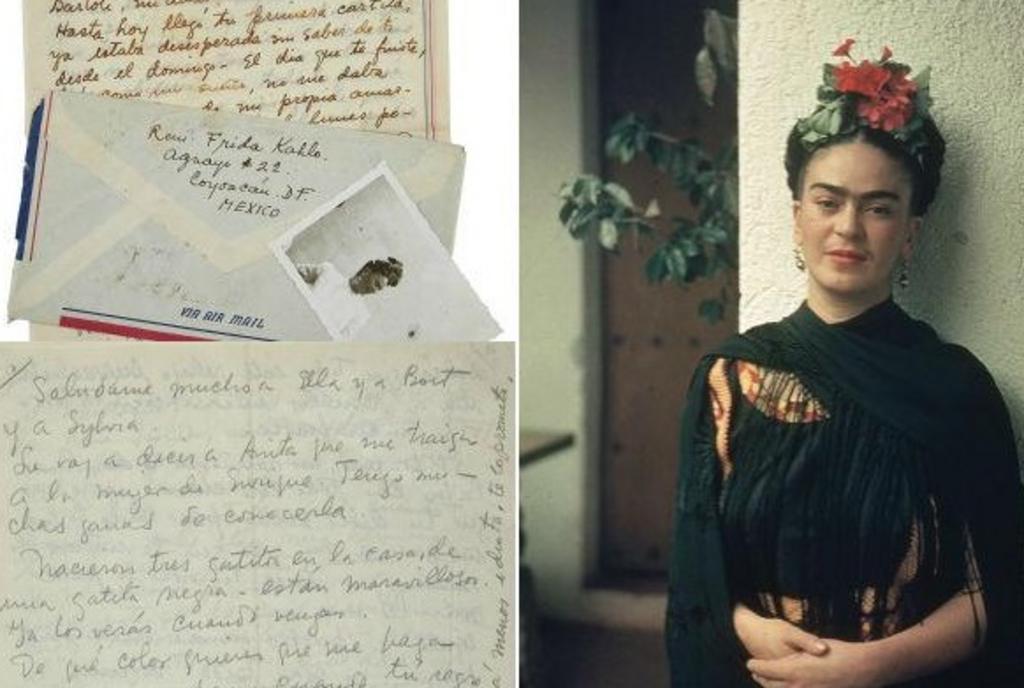 Bartoli,
Hasta hoy llegó tu primera cartita,
ya estaba desesperada sin saber de ti
desde el domingo - El día que te fuiste,
como no me daba
mi propia amar-
lunes po-
Remi. Frida Kahlo.
Aguayo #22.
Coyoacan. D.F.
MEXICO
VIA AIR MAIL
Saludame mucho a Ella y a Boit
y a Sylvia
Le voy a decir a Anita que me traiga
a la mujer de Tengo mu-
chas ganas de conocerla
Nacieron tres gatitos en la casa, de
una gatita negra - están maravillosos.
Ya los verás cuando vengas.
De qué color quieres que me haga
tú